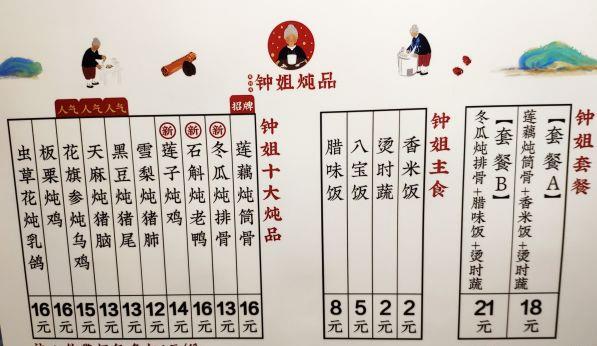 钟姐炖品
钟姐套餐
【套餐A】
莲藕炖筒骨+香米饭+烫时蔬
18元
【套餐B】
冬瓜炖排骨+腊味饭+烫时蔬
21元
钟姐主食
香米饭
2元
烫时蔬
2元
八宝饭
5元
腊味饭
8元
钟姐十大炖品
招牌
莲藕炖筒骨
16元
新
冬瓜炖排骨
13元
新
石斛炖老鸭
16元
新
莲子炖鸡
14元
雪梨炖猪肺
12元
人气
黑豆炖猪尾
13元
人气
天麻炖猪脑
13元
人气
花旗参炖乌鸡
15元
板栗炖鸡
16元
虫草花炖乳鸽
16元